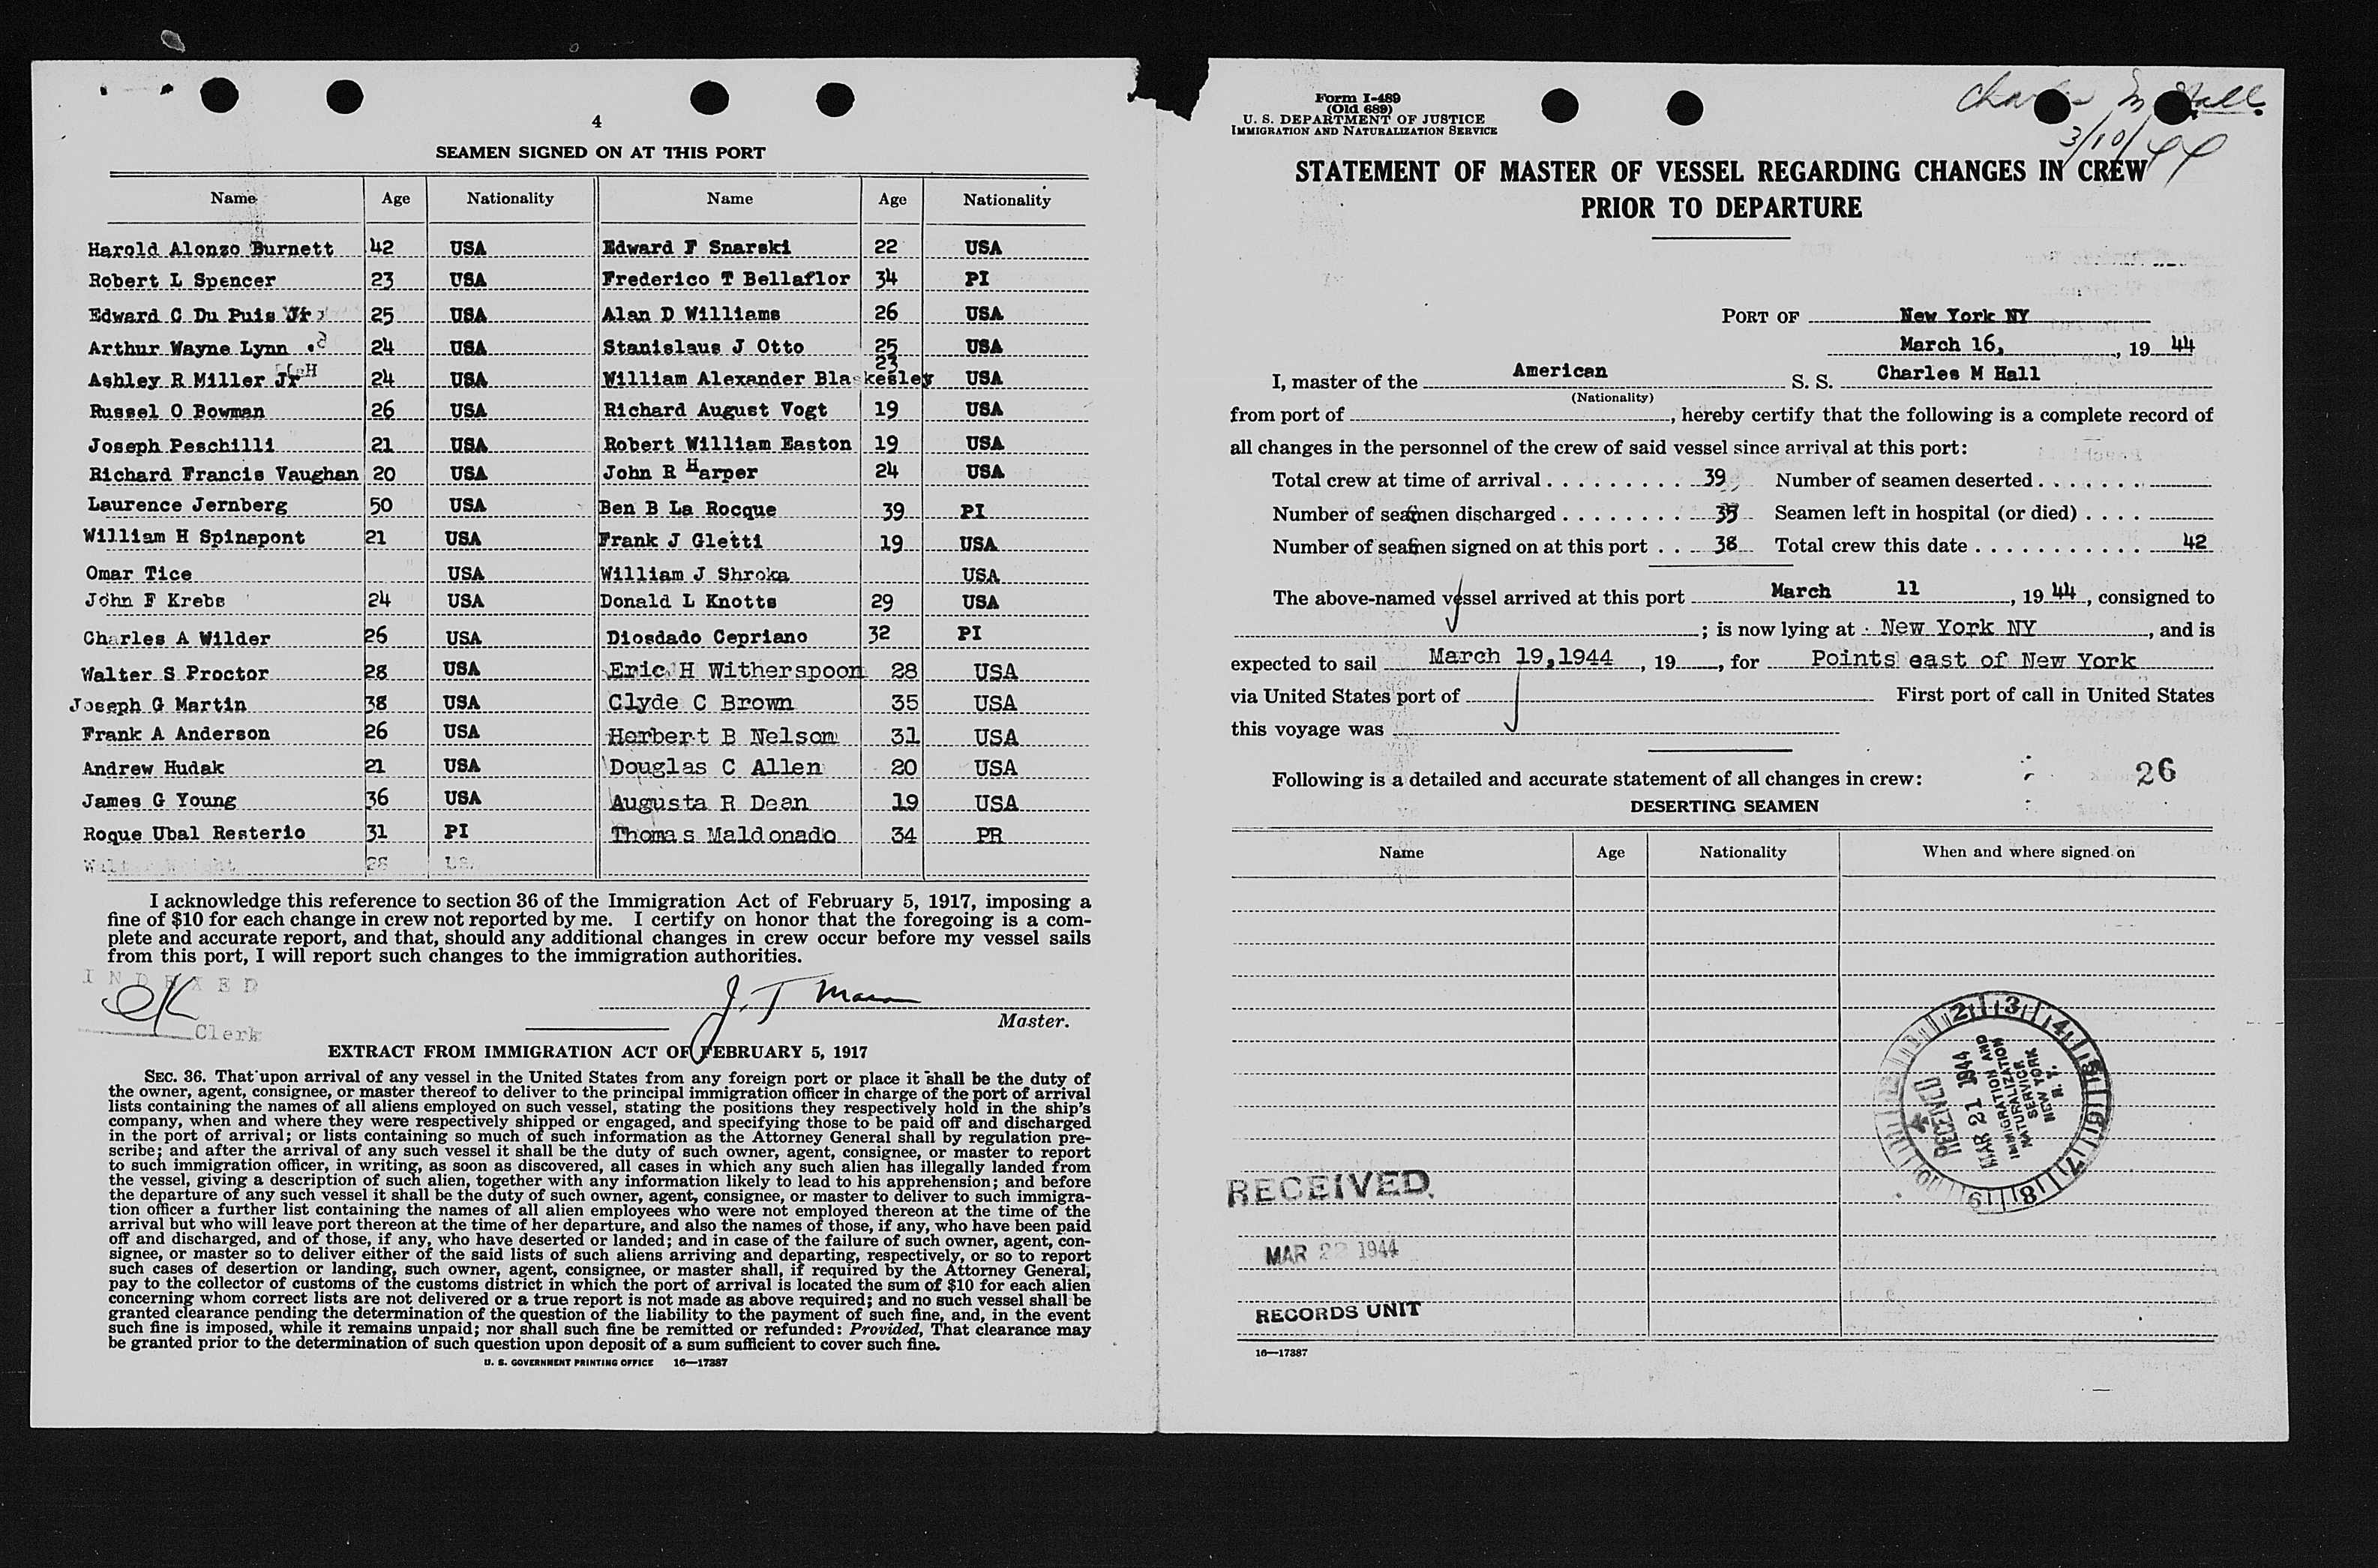 4
SEAMEN SIGNED ON AT THIS PORT
Name Age Nationality Name Age Nationality
Harold Alonzo Burnett 42 USA Edward F Snarski 22 USA
Robert L Spencer 23 USA Frederico T Bellaflor 34 PI
Edward C Du Puis Jr 25 USA Alan D Williams 26 USA
Arthur Wayne Lynn 24 USA Stanislaus J Otto 25 USA
Ashley R Miller Jr 24 USA William Alexander Blakesley 23 USA
Russel O Bowman 26 USA Richard August Vogt 19 USA
Joseph Peschilli 21 USA Robert William Easton 19 USA
Richard Francis Vaughan 20 USA John R Harper 24 USA
Laurence Jernberg 50 USA Ben B La Rocque 39 PI
William H Spinapont 21 USA Frank J Gletti 19 USA
Omar Tice USA William J Shroka USA
John F Krebs 24 USA Donald L Knotts 29 USA
Charles A Wilder 26 USA Diosdado Cepriano 32 PI
Walter S Proctor 28 USA Eric H Witherspoon 28 USA
Joseph G Martin 38 USA Clyde C Brown 35 USA
Frank A Anderson 26 USA Herbert B Nelsom 31 USA
Andrew Hudak 21 USA Douglas C Allen 20 USA
James G Young 36 USA Augusta R Dean 19 USA
Roque Ubal Resterio 31 PI Thomas Maldonado 34 PR
28
I acknowledge this reference to section 36 of the Immigration Act of February 5, 1917, imposing a
fine of $10 for each change in crew not reported by me. I certify on honor that the foregoing is a com-
plete and accurate report, and that, should any additional changes in crew occur before my vessel sails
from this port, I will report such changes to the immigration authorities.
INDEXED
Clerk
J. T
Master.
EXTRACT FROM IMMIGRATION ACT OF FEBRUARY 5, 1917
SEC. 36. That upon arrival of any vessel in the United States from any foreign port or place it shall be the duty of
the owner, agent, consignee, or master thereof to deliver to the principal immigration officer in charge of the port of arrival
lists containing the names of all aliens employed on such vessel, stating the positions they respectively hold in the ship's
company, when and where they were respectively shipped or engaged, and specifying those to be paid off and discharged
in the port of arrival; or lists containing so much of such information as the Attorney General shall by regulation pre-
scribe; and after the arrival of any such vessel it shall be the duty of such owner, agent, consignee, or master to report
to such immigration officer, in writing, as soon as discovered, all cases in which any such alien has illegally landed from
the vessel, giving a description of such alien, together with any information likely to lead to his apprehension; and before
the departure of any such vessel it shall be the duty of such owner, agent, consignee, or master to deliver to such immigra-
tion officer a further list containing the names of all alien employees who were not employed thereon at the time of the
arrival but who will leave port thereon at the time of her departure, and also the names of those, if any, who have been paid
off and discharged, and of those, if any, who have deserted or landed; and in case of the failure of such owner, agent, con-
signee, or master so to deliver either of the said lists of such aliens arriving and departing, respectively, or so to report
such cases of desertion or landing, such owner, agent, consignee, or master shall, if required by the Attorney General,
pay to the collector of customs of the customs district in which the port of arrival is located the sum of $10 for each alien
concerning whom correct lists are not delivered or a true report is not made as above required; and no such vessel shall be
granted clearance pending the determination of the question of the liability to the payment of such fine, and, in the event
such fine is imposed, while it remains unpaid; nor shall such fine be remitted or refunded: Provided, That clearance may
be granted prior to the determination of such question upon deposit of a sum sufficient to cover such fine.
U. S. GOVERNMENT PRINTING OFFICE 16—17387
Form I-489
(Old 689)
U. S. DEPARTMENT OF JUSTICE
IMMIGRATION AND NATURALIZATION SERVICE
Charles M Hall
3/10/44
STATEMENT OF MASTER OF VESSEL REGARDING CHANGES IN CREW
PRIOR TO DEPARTURE
PORT OF New York NY
March 16, , 19 44
I, master of the American S. S. Charles M Hall
(Nationality)
from port of , hereby certify that the following is a complete record of
all changes in the personnel of the crew of said vessel since arrival at this port:
Total crew at time of arrival 39 Number of seamen deserted
Number of seamen discharged 35 Seamen left in hospital (or died)
Number of seamen signed on at this port 38 Total crew this date 42
The above-named vessel arrived at this port March 11 , 19 44, consigned to
; is now lying at New York NY , and is
expected to sail March 19, 1944 , 19 , for Points east of New York
via United States port of First port of call in United States
this voyage was
Following is a detailed and accurate statement of all changes in crew:
26
DESERTING SEAMEN
Name Age Nationality When and where signed on
RECEIVED
MAR 21 1944
IMMIGRATION AND
NATURALIZATION
SERVICE
NEW YORK
N. Y.
RECEIVED
MAR 22 1944
RECORDS UNIT
16—17387